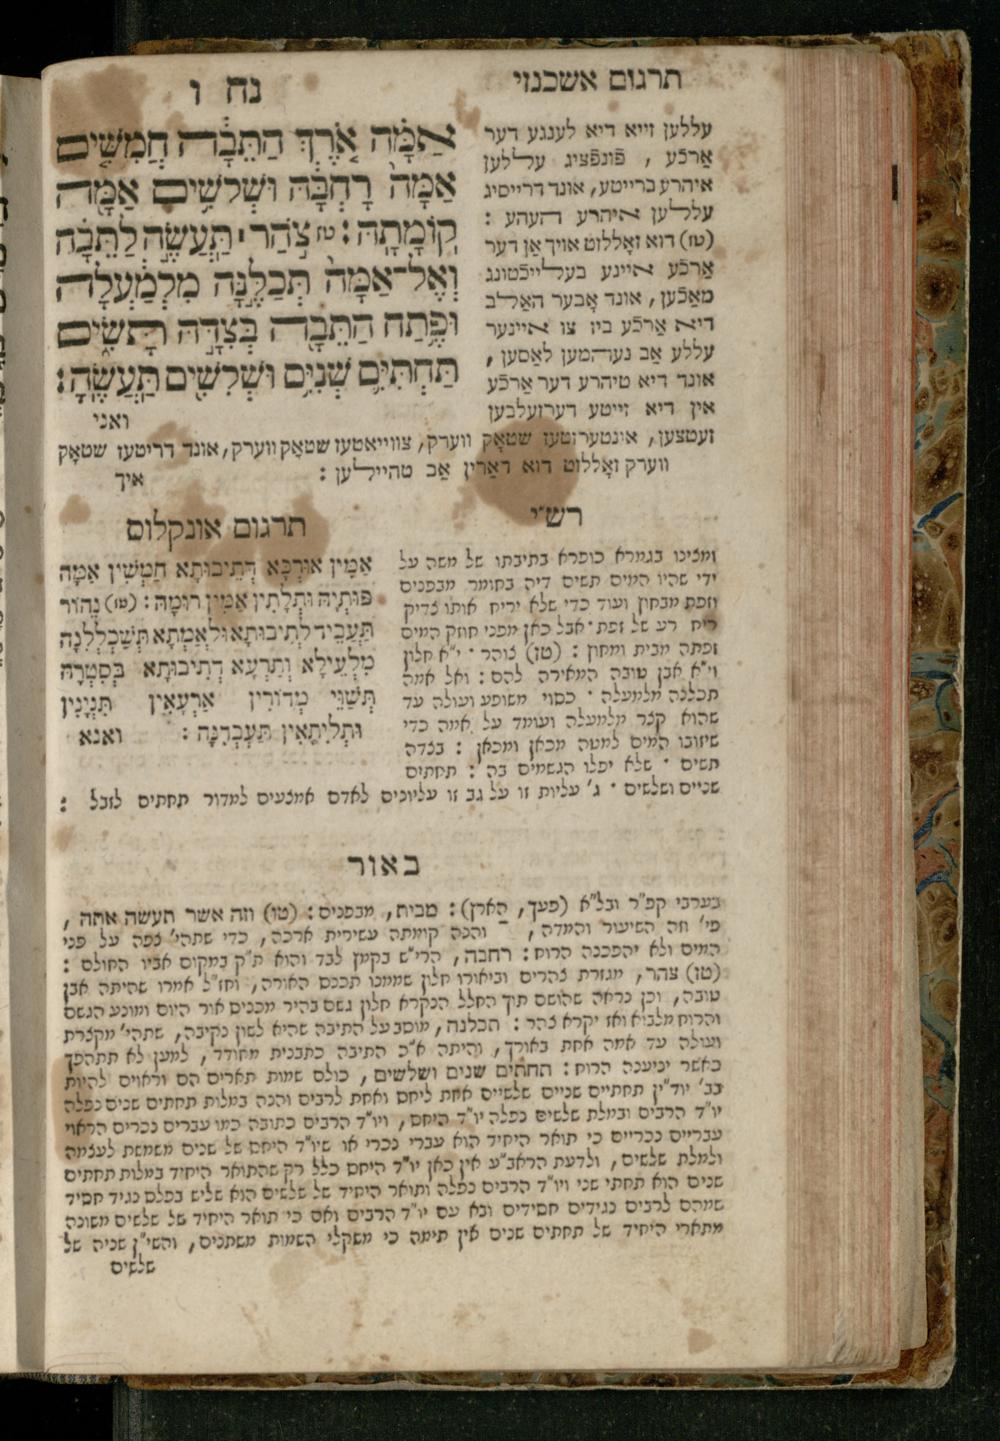 תרגום אשכנזי
נח ו
אַמָּה אֹרֶךְ הַתֵּבָה חֲמִשִּׁים
אַמָּה רָחְבָּהּ וּשְׁלֹשִׁים אַמָּה
קוֹמָתָהּ : טז צֹהַר ׀ תַּעֲשֶׂה לַתֵּבָה
וְאֶל־אַמָּה תְּכַלֶּנָּה מִלְמַעְלָה
וּפֶתַח הַתֵּבָה בְּצִדָּהּ תָּשִׂים
תַּחְתִּיִּם שְׁנִיִּם וּשְׁלִשִׁים תַּעֲשֶׂהָ :
ואני
עללען זייא דיא לענגע דער
אַרכֿע , פֿונפֿציג עללען
איהרע ברייטע, אונד דרייסיג
עללען איהרע העהע :
(טז) דוא זאָללזט אויך אַן דער
אַרכֿע איינע בעלייכֿטונג
מאַכֿען, אונד אָבער האַלב
דיא אַרכֿע ביז צו איינער
עללע אַב נעהמען לאַסען ,
אונד דיא טיהרע דער אַרכֿע
אין דיא זייטע דערזעלבען
זעטצען, אינטערזטעז שטאָק ווערק, צווייאטעז שטאָק ווערק, אונד דריטעז שטאָק
ווערק זאָללזט דוא דאַרין אַב טהיילען :
איך
רש״י
ומצינו בגמרא כופרא בתיבתו של משה על
ידי שהיו המים תשים דיה בחומר מבפנים
וזפת מבחוץ ועוד כדי שלא יריח אותו צדיק
ריח רע של זפת · אבל כאן מפני חוזק המים
זפתה מבית ומחוץ : (טז) צוהר · י״א חלון
וי״א אבן טובה המאירה להם : ואל אמה
תכלנה מלמעלה · כסוי משופע ועולה עד
שהוא קצר מלמעלה ועומד על אמה כדי
שיזובו המים למטה מכאן ומכאן : בצדה
תשים · שלא יפלו הגשמים בה : תחתים
שניים ושלשים · ג׳ עליות זו על גב זו עליונים לאדם אמצעים למדור תחתים לזבל :
תרגום אונקלוס
אַמִּין אוּרְכָּא דְתֵיבוּתָא חַמְשִׁין אַמָּה
פּוּתְיָהּ וּתְלָתִין אַמִּין רוּמָהּ : (טז) נֵהוֹר
תַּעֲבֵיד לְתֵיבוּתָא וּלְאַמְתָא תְּשַׁכְלְלִנָּהּ
מִלְעֵילָא וְתַרְעָא דְתֵיבוּתָא בְּסִטְרָהּ
תְּשַׁוֵּי מְדוֹרִין אַרְעָאִין תִּנְיָנִין
וּתְלִיתָאִין תַּעְבְּדִנָּהּ : ואנא
באור
בערבי קפ״ר ובל״א (פעך, הארץ) : מבית, מבפנים : (טו) וזה אשר תעשה אתה ,
פי׳ וזה השיעור והמדה, והנה קומתה עשירית ארכה, כדי שתהי׳ צפה על פני
המים ולא יהפכנה הרוח : רחבה, הרי״ש בקמץ לבד והוא ת״ק במקום אביו החולם :
(טז) צהר, מגזרת צהרים וביאורו חלון שממנו תכנס האורה, וחז״ל אמרו שהיתה אבן
טובה, וכן נראה שהושם תוך החלל הנקרא חלון גשם בהיר מכנים אור היום ומונע הגשם
והרוח מלבוא ואז יקרא צהר : תכלנה, מוסב על התיבה שהיא לשון נקיבה, שתהי׳ מקצרת
ועולה עד אמה אחת באורך, והיתה א״כ התיבה כתבנית מחודד, למען לא תתהפך
כאשר יניענה הרוח : תחתים שנים ושלשים, כולם שמות תארים הם וראוים להיות
בב׳ יוד״ין תחתיים שניים שלשיים אחת ליחס ואחת לרבים והנה במלות תחתים שנים נפלה
יו״ד הרבים ובמלת שלשים נפלה יו״ד היחס, ויו״ד הרבים כתובה כמו עברים נכרים הראוי
עבריים נכריים כי תואר היחיד הוא עברי נכרי או שיו״ד היחס של שנים משמשת לעצמה
ולמלת שלשים, ולדעת הראב״ע אין כאן יו״ד היחס כלל רק שהתואר היחיד במלות תחתים
שנים הוא תחתי שני ויו״ד הרבים נפלה ותואר היחיד של שלשים הוא שליש בפלס נגיד חסיד
שמהם לרבים נגידים חסידים ובא עם יו״ד הרבים ואם כי תואר היחיד של שלשים משונה
מתארי היחיד של תחתים שנים אין תימה כי משקלי השמות משתנים, והשי״ן שניה של
שלשים